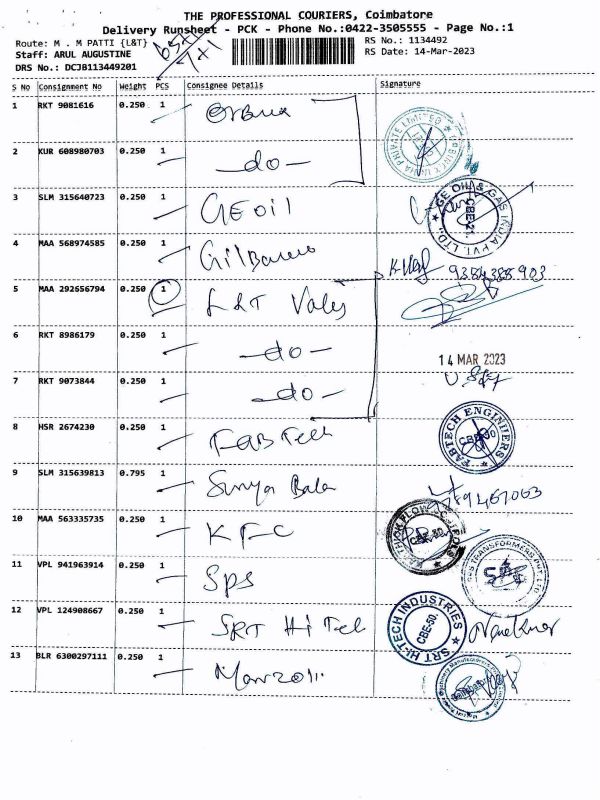 THE PROFESSIONAL COURIERS, Coimbatore
Delivery Runsheet - PCK - Phone No.:0422-3505555 - Page No.:1
Route: M . M PATTI {L&T}
RS No.: 1134492
Staff: ARUL AUGUSTINE
RS Date: 14-Mar-2023
DRS No.: DCJB113449201
S No Consignment No Weight PCS Consignee Details Signature
1 RKT 9081616 0.250 1
2 KUR 608980703 0.250 1 -do-
3 SLM 315640723 0.250 1 GEOil
GE OIL & GAS INDIA PVT. LTD.
CBE-21.
4 MAA 568974585 0.250 1 Gilbarco
5 MAA 292656794 0.250 1 L&T Valves
6 RKT 8986179 0.250 1 -do-
14 MAR 2023
7 RKT 9073844 0.250 1 -do-
8 HSR 2674230 0.250 1 FabTech
FABTECH ENGINEERS
9 SLM 315639813 0.795 1 Surya Bala
10 MAA 563335735 0.250 1 KFC
CBE-50.
11 VPL 941963914 0.250 1 SPS
12 VPL 124908667 0.250 1 SRT Hi Tech
SRT HI-TECH INDUSTRIES
CBE-50.
13 BLR 6300297111 0.250 1